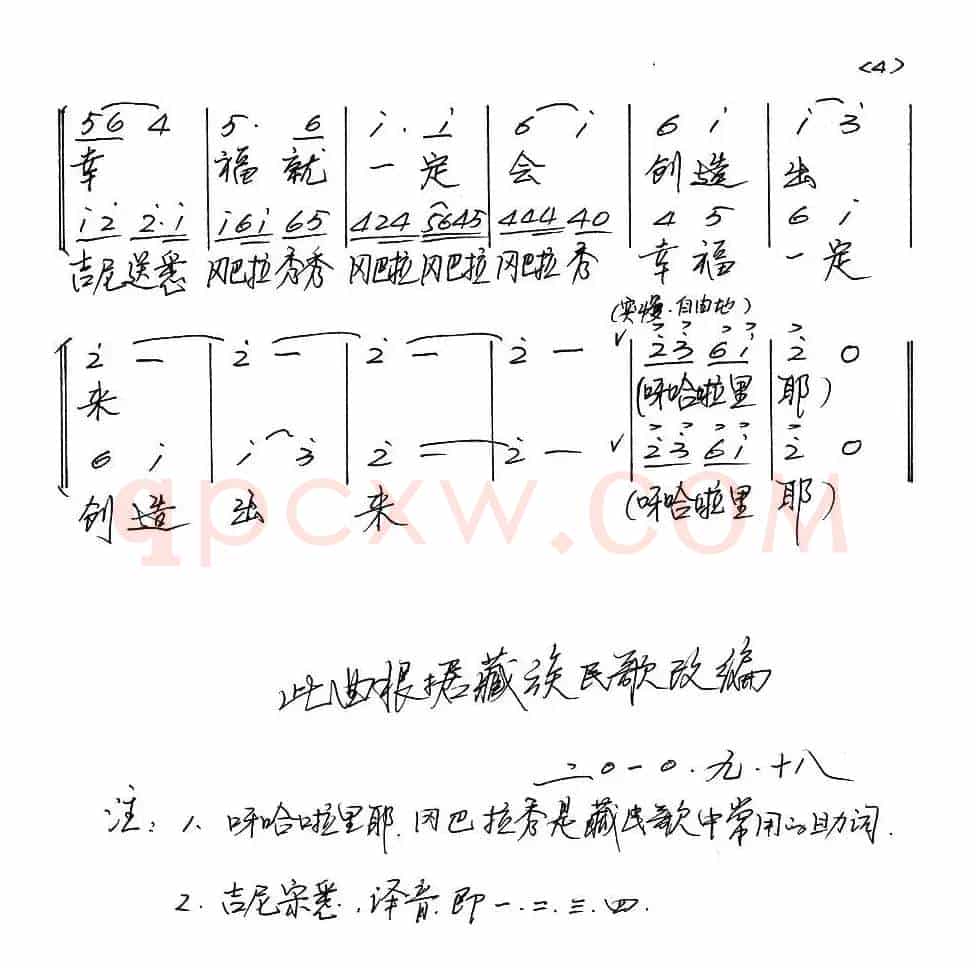 <4>
5 6 4 | 5 · 6 | i · i | 6 i | 6 i | i 3
幸 福 就 一 定 会 创 造 出
i 2 2 · i | i 6 i 6 5 | 4 2 4 5 6 4 5 | 4 4 4 4 0 | 4 5 | 6 i
吉尼送悉 冈巴拉秀秀 冈巴拉冈巴拉 冈巴拉秀 幸 福 一 定
(突慢·自由地)
2 — | 2 — | 2 — | 2 — | 2 3 6 i | 2 0
来 (呀哈啦里 耶)
6 i | i 3 | 2 — | 2 — | 2 3 6 i | 2 0
创 造 出 来 (呀哈啦里 耶)
qpcxw.com
此曲根据藏族民歌改编
二〇一〇.九.十八
注:1、呀哈啦里耶.冈巴拉秀是藏民歌中常用的助词.
2.吉尼宗悉.译音.即一.二.三.四.